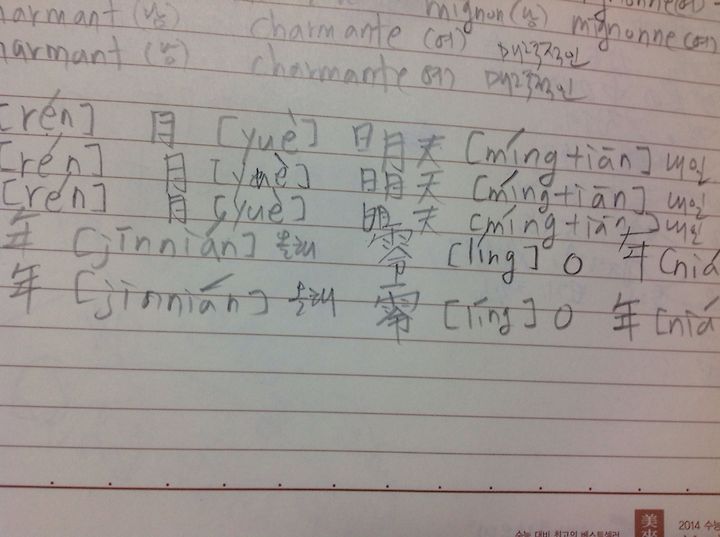 mignon (남) mignonne (여)
charmant (남) charmante (여) 매력적인
harmant (남) charmante 여) 매력적인
[rén] 月 [yuè] 明天 [míng tiān] 내일
[rén] 月 [yuè] 明天 [míng tiān] 내일
[rén] 月 [yuè] 明天 [míng tiān] 내일
年 [jīnnián] 올해 零 [líng] 0 年 [niá
年 [jīnnián] 올해 零 [líng] 0 年 [niá
수능 대비 최고의 베스트셀러 美 2014 수능